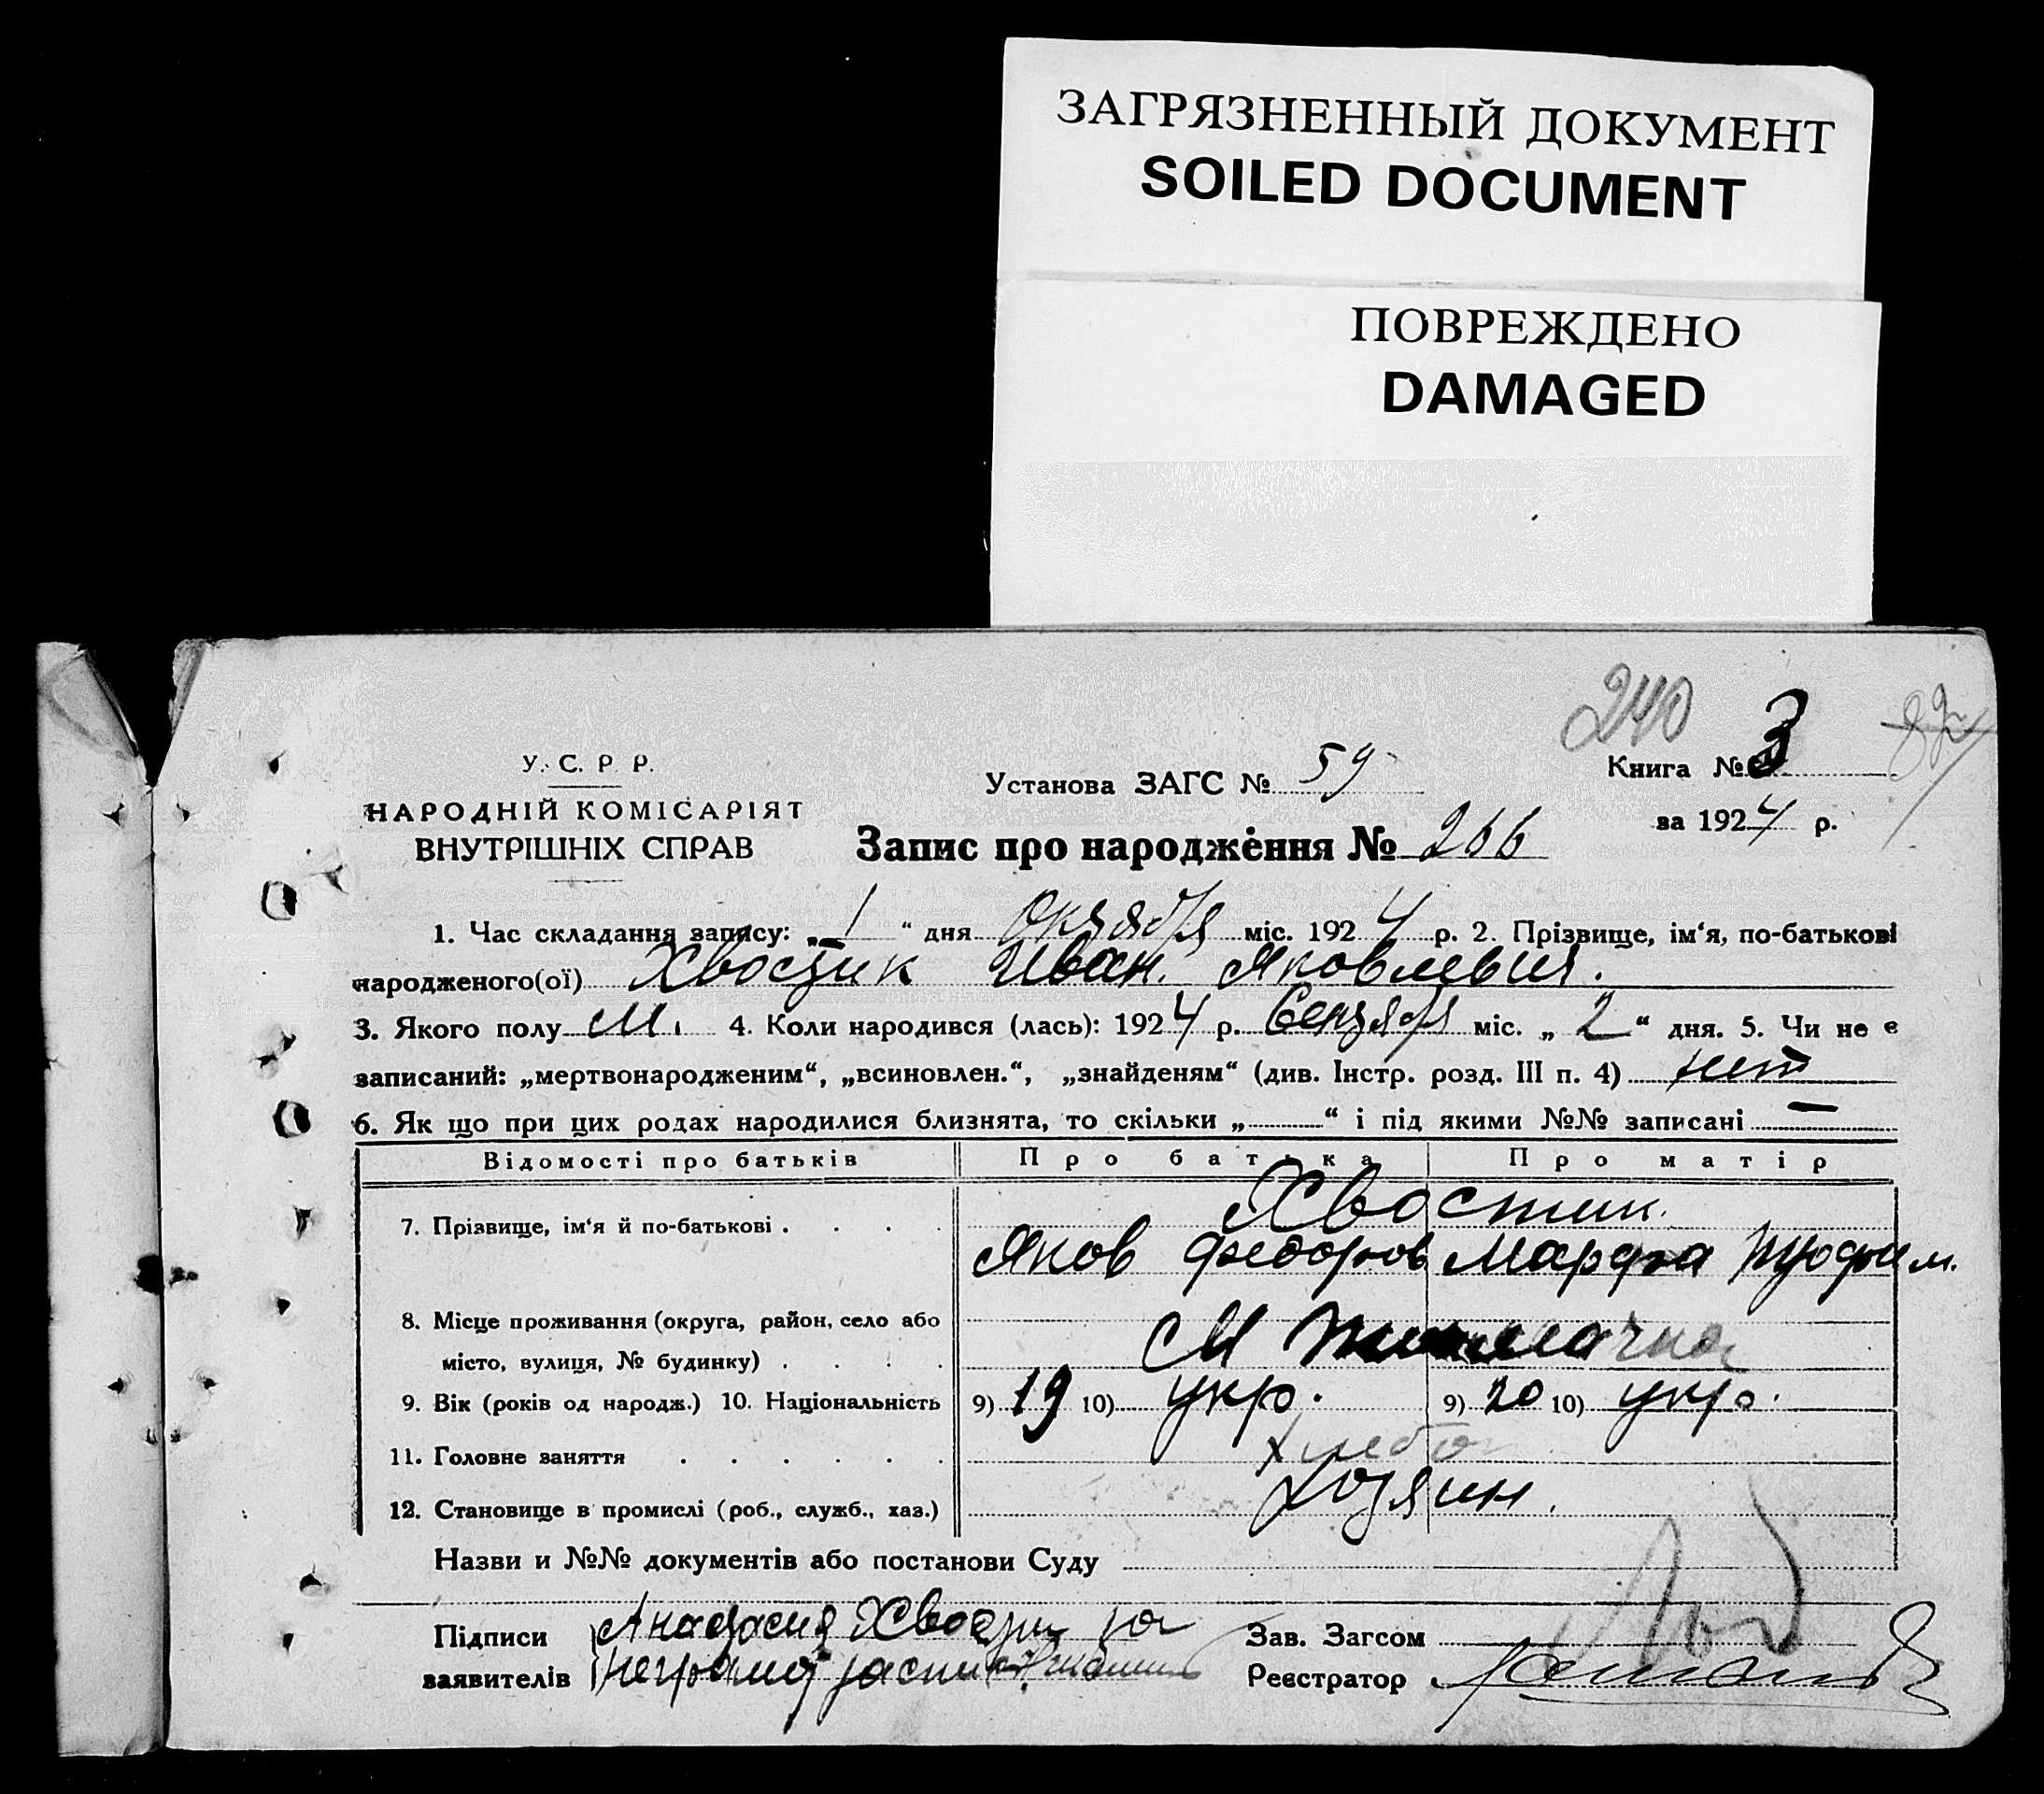 ЗАГРЯЗНЕННЫЙ ДОКУМЕНТ
SOILED DOCUMENT
ПОВРЕЖДЕНО
DAMAGED
240
82
У. С. Р. Р.
НАРОДНІЙ КОМІСАРІЯТ
ВНУТРІШНІХ СПРАВ
Установа ЗАГС № 59
Книга № 3
за 1924 р.
Запис про народження № 266
1. Час складання запису: „1“ дня Октября міс. 1924 р. 2. Прізвище, ім‘я, по-батькові
народженого(ої) Хвостик Иван Яковлевич.
3. Якого полу М. 4. Коли народився (лась): 1924 р. Сентября міс. „2“ дня. 5. Чи не є
записаний: „мертвонародженим“, „всиновлен.“, „знайденям“ (див. Інстр. розд. III п. 4) нет
6. Як що при цих родах народилися близнята, то скільки „ “ і під якими №№ записані —
Відомості про батьків Про батька Про матір
7. Прізвище, ім‘я й по-батькові . . . . Хвостик.
Яков Федоров Марфа Трофим.
8. Місце проживання (округа, район, село або
місто, вулиця, № будинку) . . . . М
9. Вік (років од народж.) 10. Національність 9) 19 10) укр. 9) 20 10) укр.
11. Головне заняття . . . . . . хлебо
12. Становище в промислі (роб., служб., хаз.) Хозяин.
Назви и №№ документів або постанови Суду
Підписи Анастасия Хвостик за Зав. Загсом
заявителів неграмот распис Реєстратор